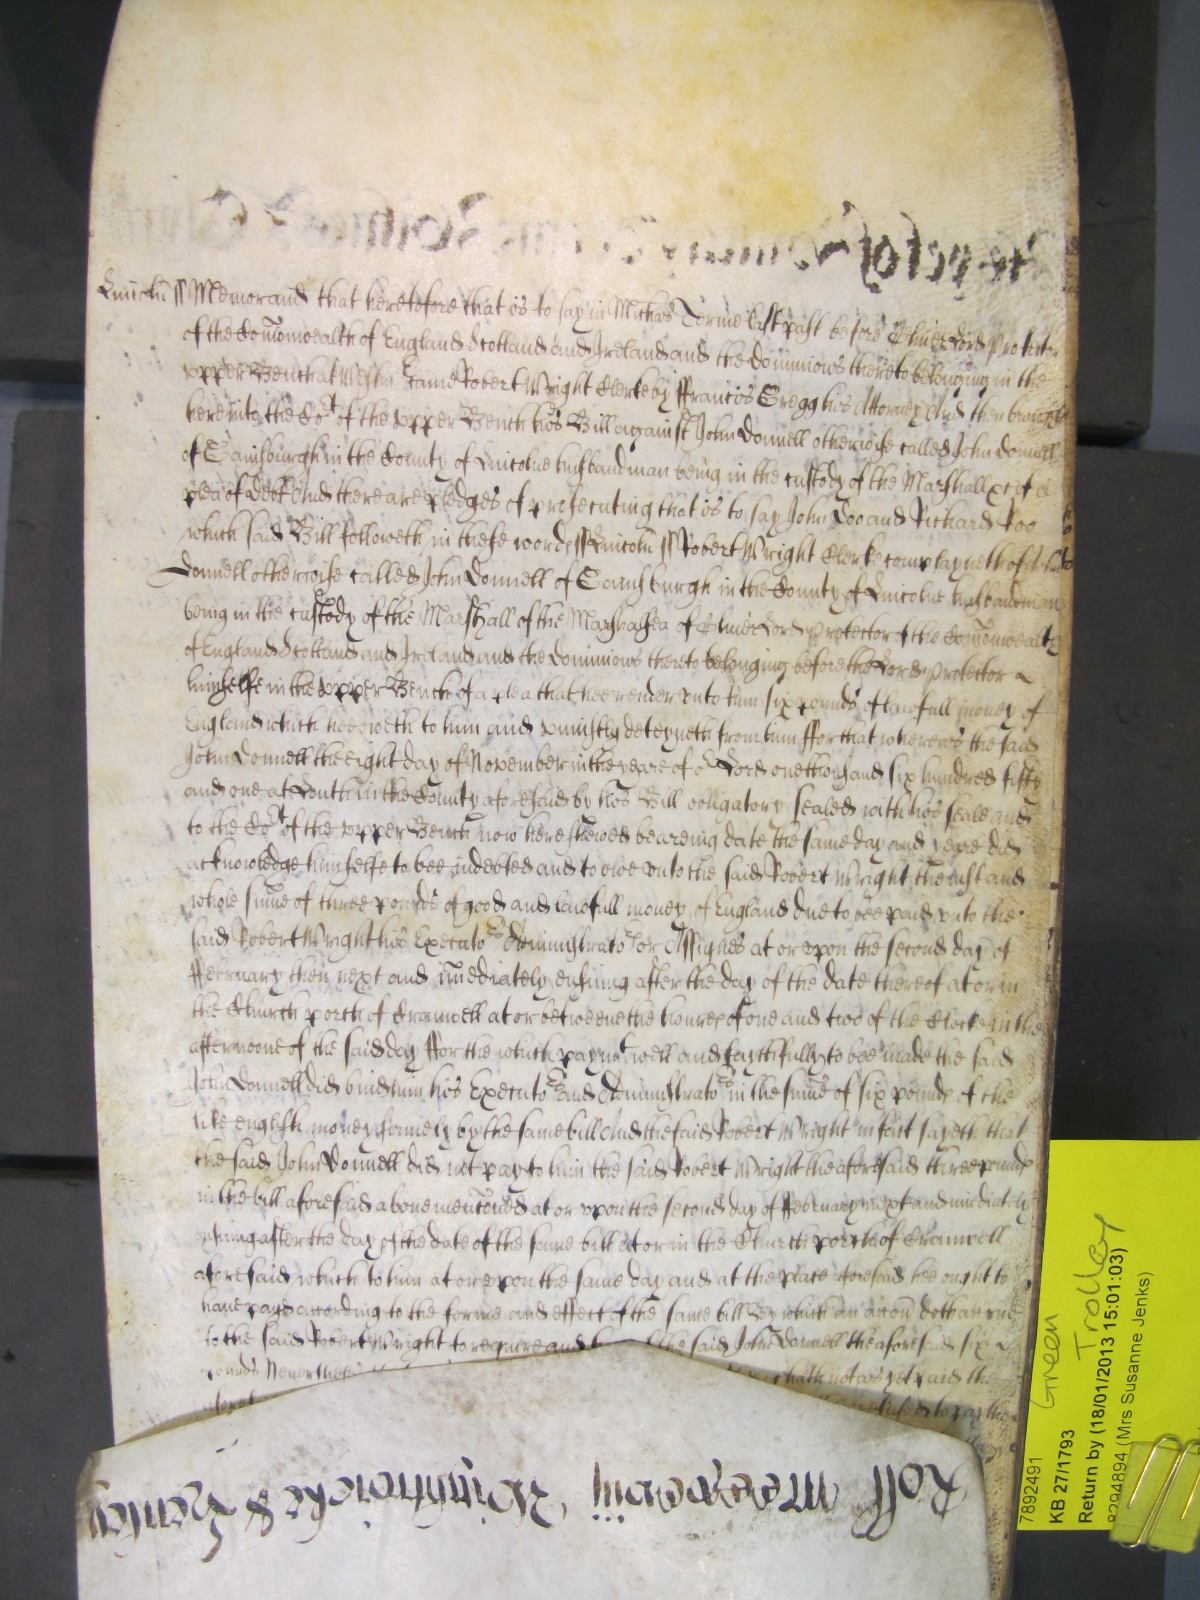 Lincoln ss Memorand that heretofore that is to say in Michas Terme last past before Oliver Lord Protector
of the Comonwealth of England Scotland and Ireland and the dominions thereto belonging in the
upper Bench at Westm came Robert Wright Clerke by ffrancis Gregg his Attorney And then brought
here into the Cort of the upper Bench his Bill against John Donnell otherwise called John Donnell
of Gainsburgh in the County of Lincolne husbandman being in the custody of the Marshall &c of a
plea of debt And there are pledges of prosecuting that is to say John Doo and Richard Roo
which said Bill followeth in these words ss Lincoln ss Robert Wright Clerke complayneth of John
Donnell otherwise called John Donnell of Gainsburgh in the County of Lincolne husbandman
being in the custody of the Marshall of the Marshalsea of Oliver Lord Protector of the Comonwealth
of England Scotland and Ireland and the dominions thereto belonging before the Lord Protector
himselfe in the upper Bench of a plea that hee render unto him six pounds of lawfull money of
England which hee oweth to him and uniustly deteyneth from him ffor that whereas the said
John Donnell the eight day of November in the yeare of or Lord one thousand six hundred fifty
and one at Louth in the County aforesaid by his Bill obligatory sealed with his seale and
to the Cort of the upper Bench now here shewed beareing date the same day and yeare did
acknowledge himselfe to bee indebted and to owe unto the said Robert Wright the iust and
whole sume of three pounds of good and lawfull money of England due to bee paid unto the
said Robert Wright his Executors Administrators or Assignes at or upon the second day of
ffebruary then next and imediately ensuing after the day of the date thereof at or in
the Church porch of Cranwell at or betweene the houres of one and two of the Clocke in the
afternoone of the said day ffor the which paymt well and faythfully to bee made the said
John Donnell did bind him his Executors and Administrators in the sume of six pounds of the
like english money firmely by the same bill And the said Robert Wright in fact sayeth that
the said John Donnell did not pay to him the said Robert Wright the aforesaid three pounds
in the bill aforesaid above mentoned at or upon the second day of ffebruary next and imediately
ensuing after the day of the date of the same bill at or in the Church porch of Cranwell
aforesaid which to him at or upon the same day and at the place aforesaid hee ought to
have payd according to the forme and effect of the same bill By which an accon doth accrue
to the said Robert Wright to require and the said John Donnell the aforesaid six
pounds Neverthelesse hath not as yet paid the
to pay them
Roll
7892491
Green
KB 27/1793
Trolley
Return by (18/01/2013 15:01:03)
8294894 (Mrs Susanne Jenks)